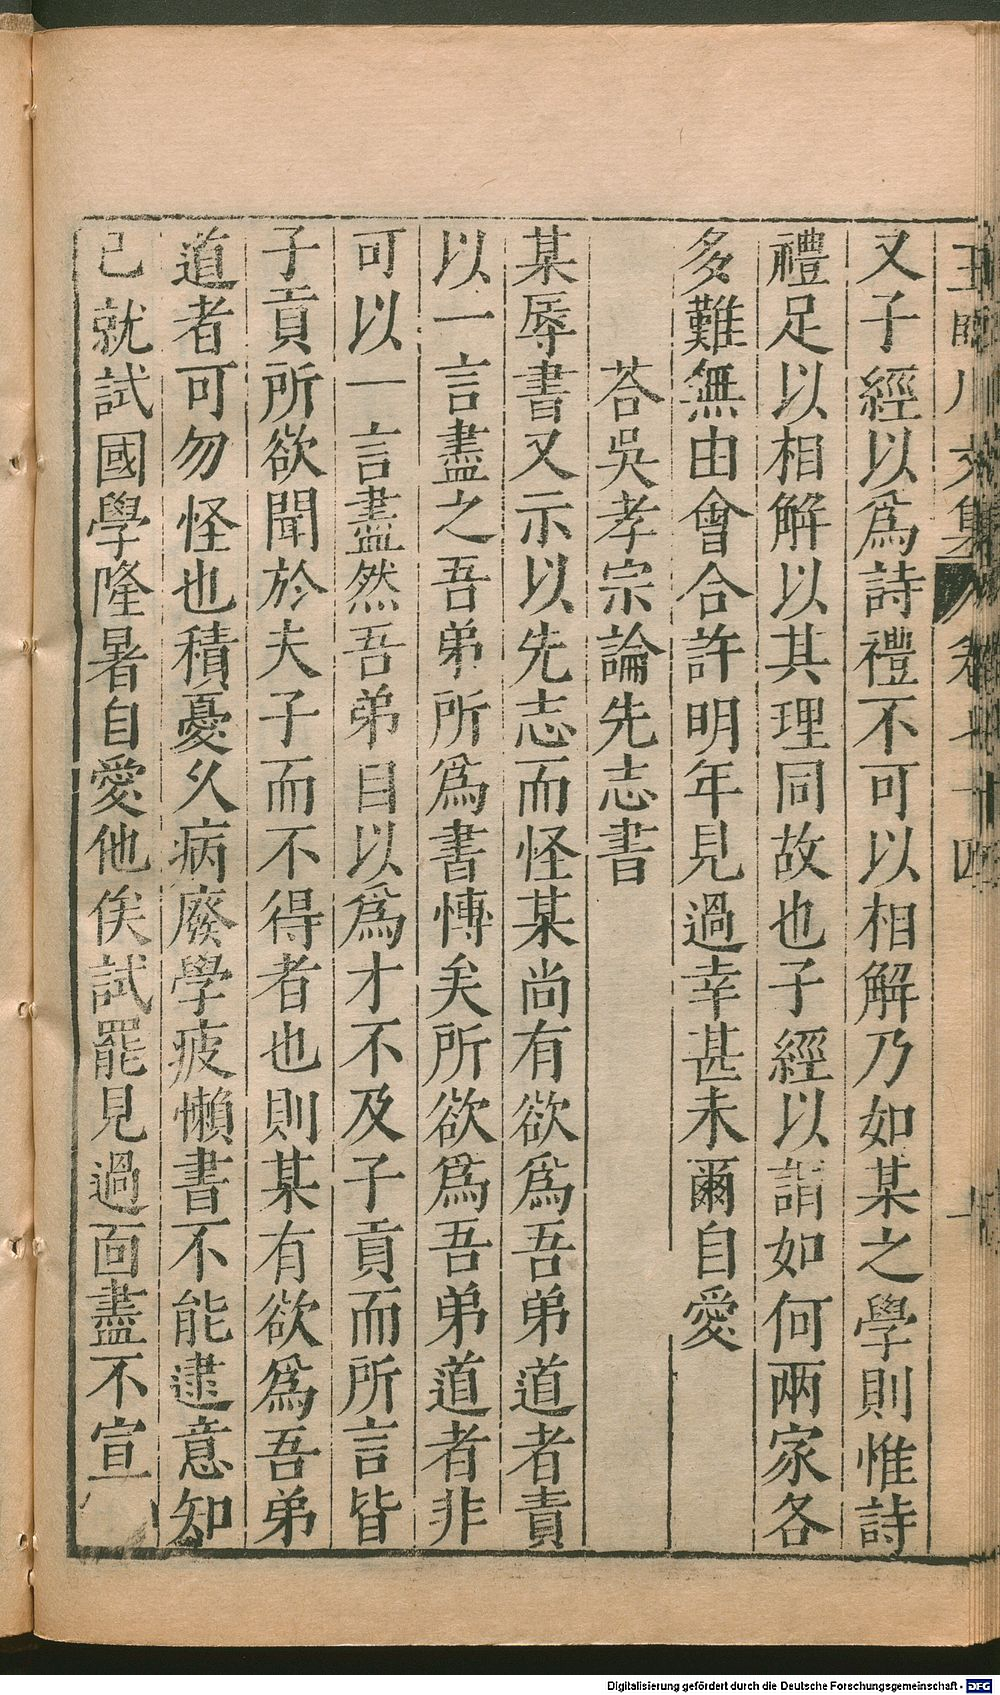 又子經以爲詩禮不可以相解乃如某之學則惟詩
禮足以相解以其理同故也子經以謂如何兩家各
多難無由會合許明年見過幸甚未爾自愛
荅吳孝宗論先志書
某辱書又示以先志而怪某尚有欲爲吾弟道者責
以一言盡之吾弟所爲書博矣所欲爲吾弟道者非
可以一言盡然吾弟目以爲才不及子貢而所言皆
子貢所欲聞於夫子而不得者也則某有欲爲吾弟
道者可勿怪也積憂久病廢學疲懶書不能逮意知
已就試國學隆暑自愛他俟試罷見過面盡不宣
Digitalisierung gefördert durch die Deutsche Forschungsgemeinschaft - DFG